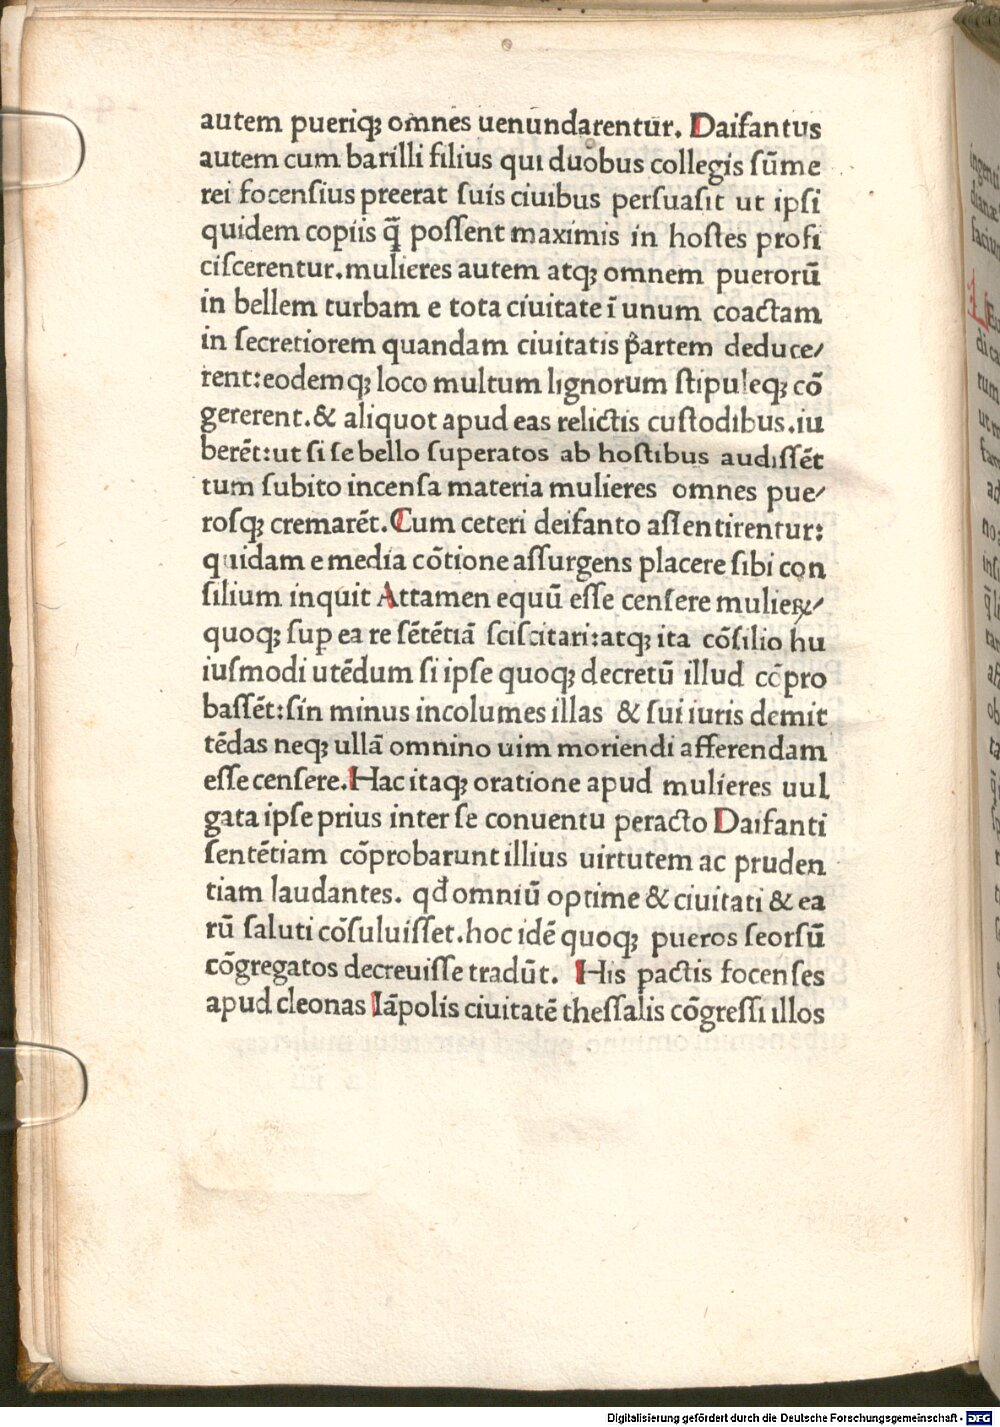 autem pueriqꝫ omnes uenundarentur. Daifantus
autem cum barilli filius qui duobus collegis ſūme
rei focenſius preerat ſuis ciuibus perſuaſit ut ipſi
quidem copiis q̄̄ poſſent maximis in hoſtes profi
ciſcerentur. mulieres autem atqꝫ omnem puerorū
in bellem turbam e tota ciuitate ī unum coactam
in ſecretiorem quandam ciuitatis p̄artem deduce/
rent: eodemqꝫ loco multum lignorum ſtipuleqꝫ cō
gererent. & aliquot apud eas relictis cuſtodibus. iu
berēt: ut ſi ſe bello ſuperatos ab hoſtibus audiſſēt
tum ſubito incenſa materia mulieres omnes pue/
roſqꝫ cremarēt. Cum ceteri deifanto aſſentirentur:
quidam e media cōtione aſſurgens placere ſibi con
ſilium inquit Attamen equū eſſe cenſere mulieꝝ/
quoqꝫ ſup ea re ſētētiā ſciſcitari: atqꝫ ita cōſilio hu
iuſmodi utēdum ſi ipſe quoqꝫ decretū illud cōpro
baſſēt: ſin minus incolumes illas & ſui iuris demit
tēdas neqꝫ ullā omnino uim moriendi afferendam
eſſe cenſere. Hac itaqꝫ oratione apud mulieres uul
gata ipſe prius inter ſe conuentu peracto Daifanti
ſentētiam cōprobarunt illius uirtutem ac pruden
tiam laudantes. qđ omniū optime & ciuitati & ea
rū ſaluti cōſuluiſſet. hoc idē quoqꝫ pueros ſeorſū
cōgregatos decreuiſſe tradūt. His pactis focenſes
apud cleonas Iāpolis ciuitatē theſſalis cōgreſſi illos
Digitalisierung gefördert durch die Deutsche Forschungsgemeinschaft - DFG